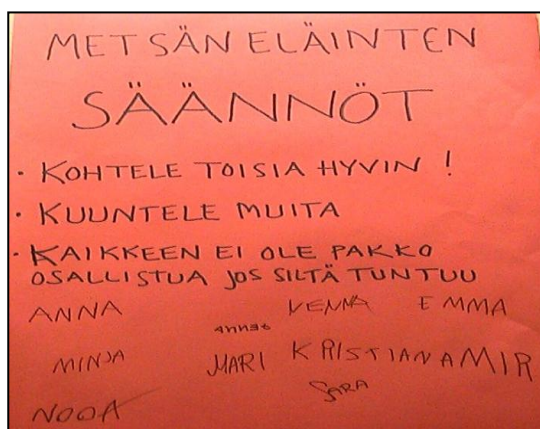 METSÄN ELÄINTEN
SÄÄNNÖT
• KOHTELE TOISIA HYVIN !
• KUUNTELE MUITA
• KAIKKEEN EI OLE PAKKO
OSALLISTUA JOS SILTÄ TUNTUU
ANNA VENNA EMMA
MINJA MARI KRISTIAN AMIR
SARA
NOOA